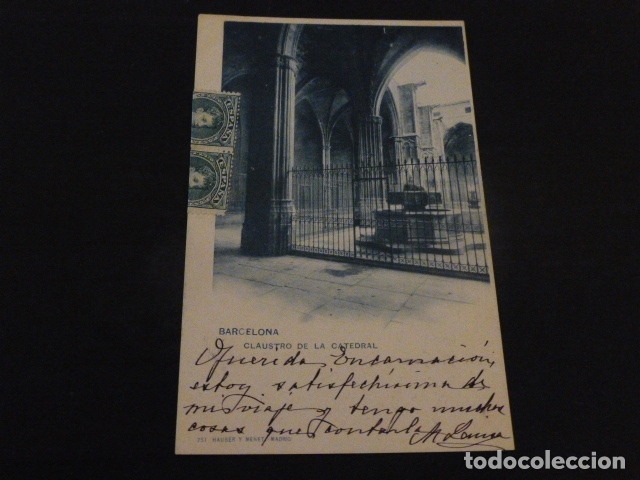 ESPAÑA
ESPAÑA
BARCELONA
CLAUSTRO DE LA CATEDRAL
Querida Encarnación,
estoy satisfechísima de
mi viaje y tengo muchas
cosas que contarla Mª Luisa
HAUSER Y MENET, MADRID
todocoleccion.net